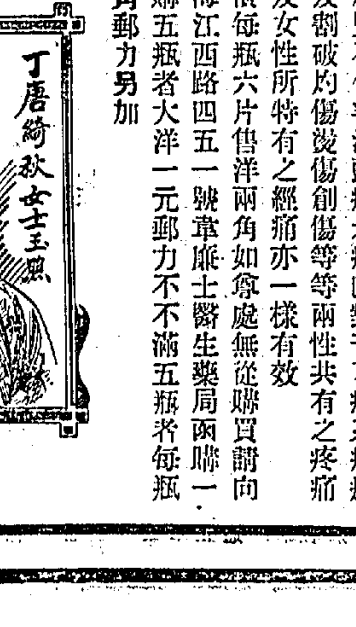 割破灼傷燙傷創傷等等兩性共有之疼痛
及女性所特有之經痛亦一樣有效
每瓶六片售洋兩角如尊處無從購買請向
海江西路四五一號韋廉士醫生藥局函購一
購五瓶者大洋一元郵力不不滿五瓶者每瓶
角郵力另加
丁唐綺秋女士玉照